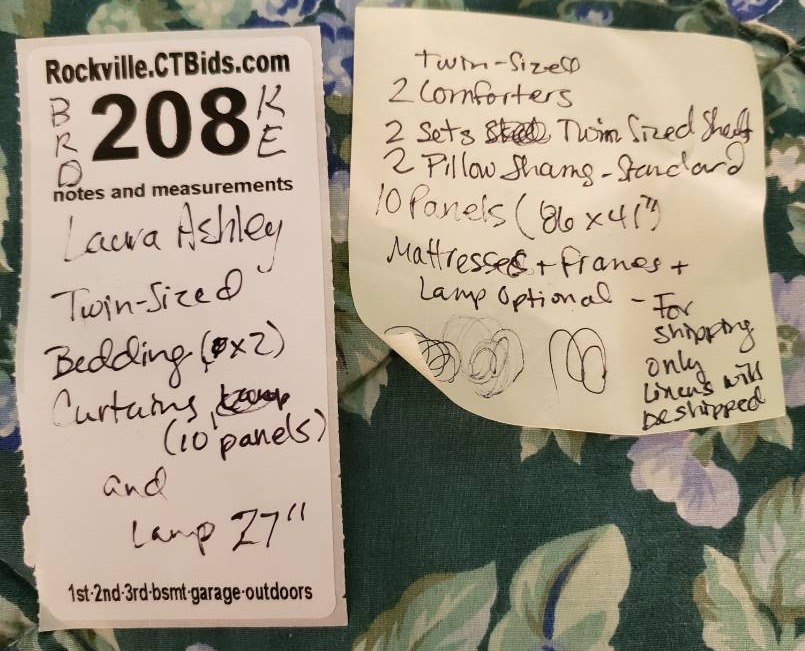 Rockville.CTBids.com
BRD 208 KE
notes and measurements
Laura Ashley
Twin-Sized
Bedding ( x2)
Curtains,
(10 panels)
and
Lamp 27"
1st-2nd-3rd-bsmt-garage-outdoors
Twin-Sized
2 Comforters
2 Sets Twin Sized Sheet
2 Pillow Shams - Standard
10 Panels (86 x 41")
Mattresses + frames +
Lamp Optional - For
shipping
only
Linens will
be shipped